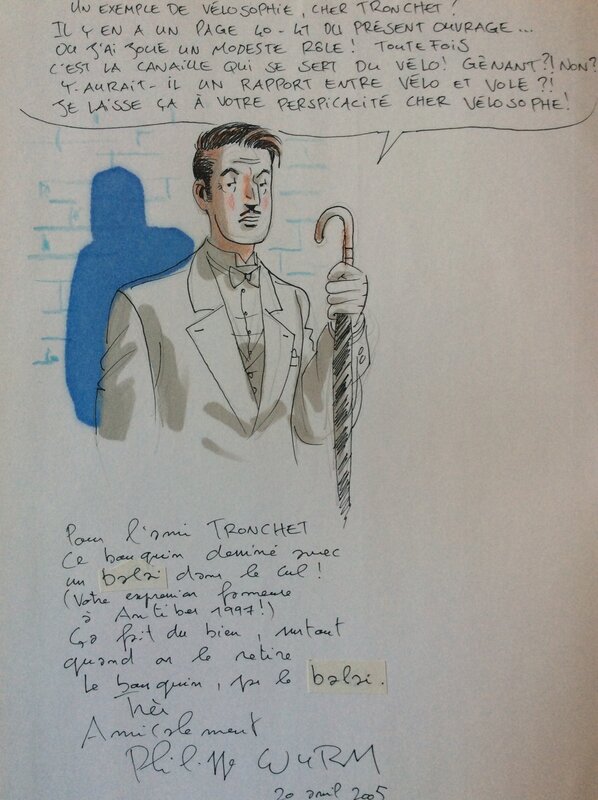 UN EXEMPLE DE VÉLOSOPHIE, CHER TRONCHET!
IL Y EN A UN PAGE 40-41 DU PRÉSENT OUVRAGE...
OÙ J'AI JOUÉ UN MODESTE RÔLE! TOUTEFOIS
C'EST LA CANAILLE QUI SE SERT DU VÉLO! GÊNANT?! NON?
Y-AURAIT-IL UN RAPPORT ENTRE VÉLO ET VOLE ?!
JE LAISSE ÇA À VOTRE PERSPICACITÉ CHER VÉLOSOPHE!
Pour l'ami TRONCHET
Ce bouquin dessiné avec
un balai dans le cul!
(Votre expression fameuse
à Antibes 1997!)
Ça fait du bien, surtout
quand on le retire
Le bouquin, pas le balai.
Très
Amicalement
Philippe WURM
20 avril 2005